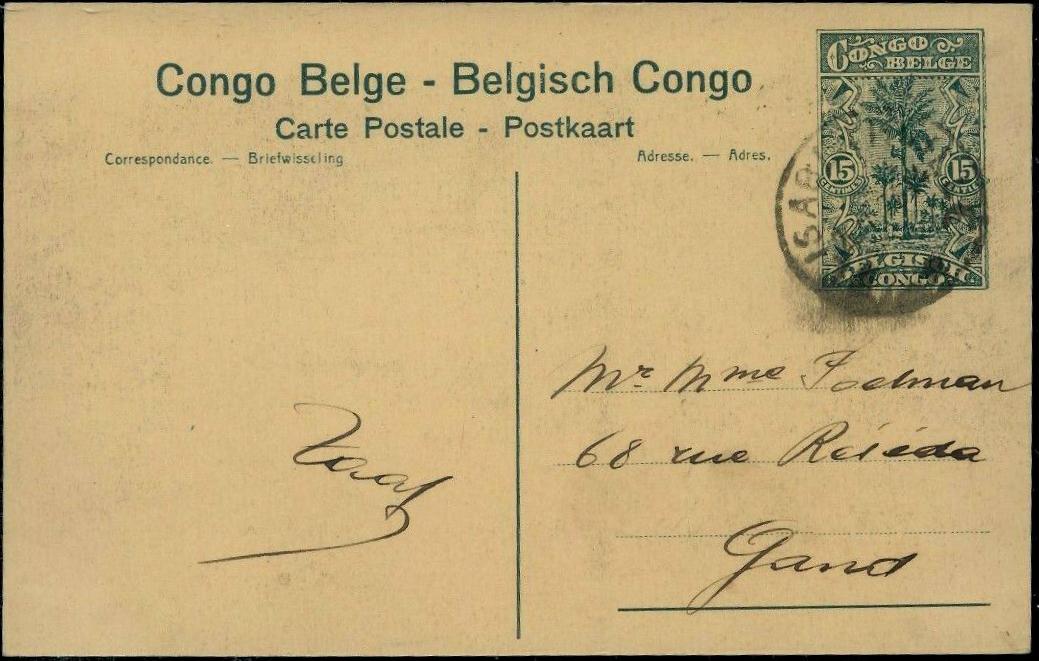 Congo Belge - Belgisch Congo
Carte Postale - Postkaart
Correspondance. — Briefwisseling
Adresse. — Adres.
CONGO BELGE
15 CENTIMES
15
BELGISCH CONGO
Mr Mme
68 rue Réséda
Gand